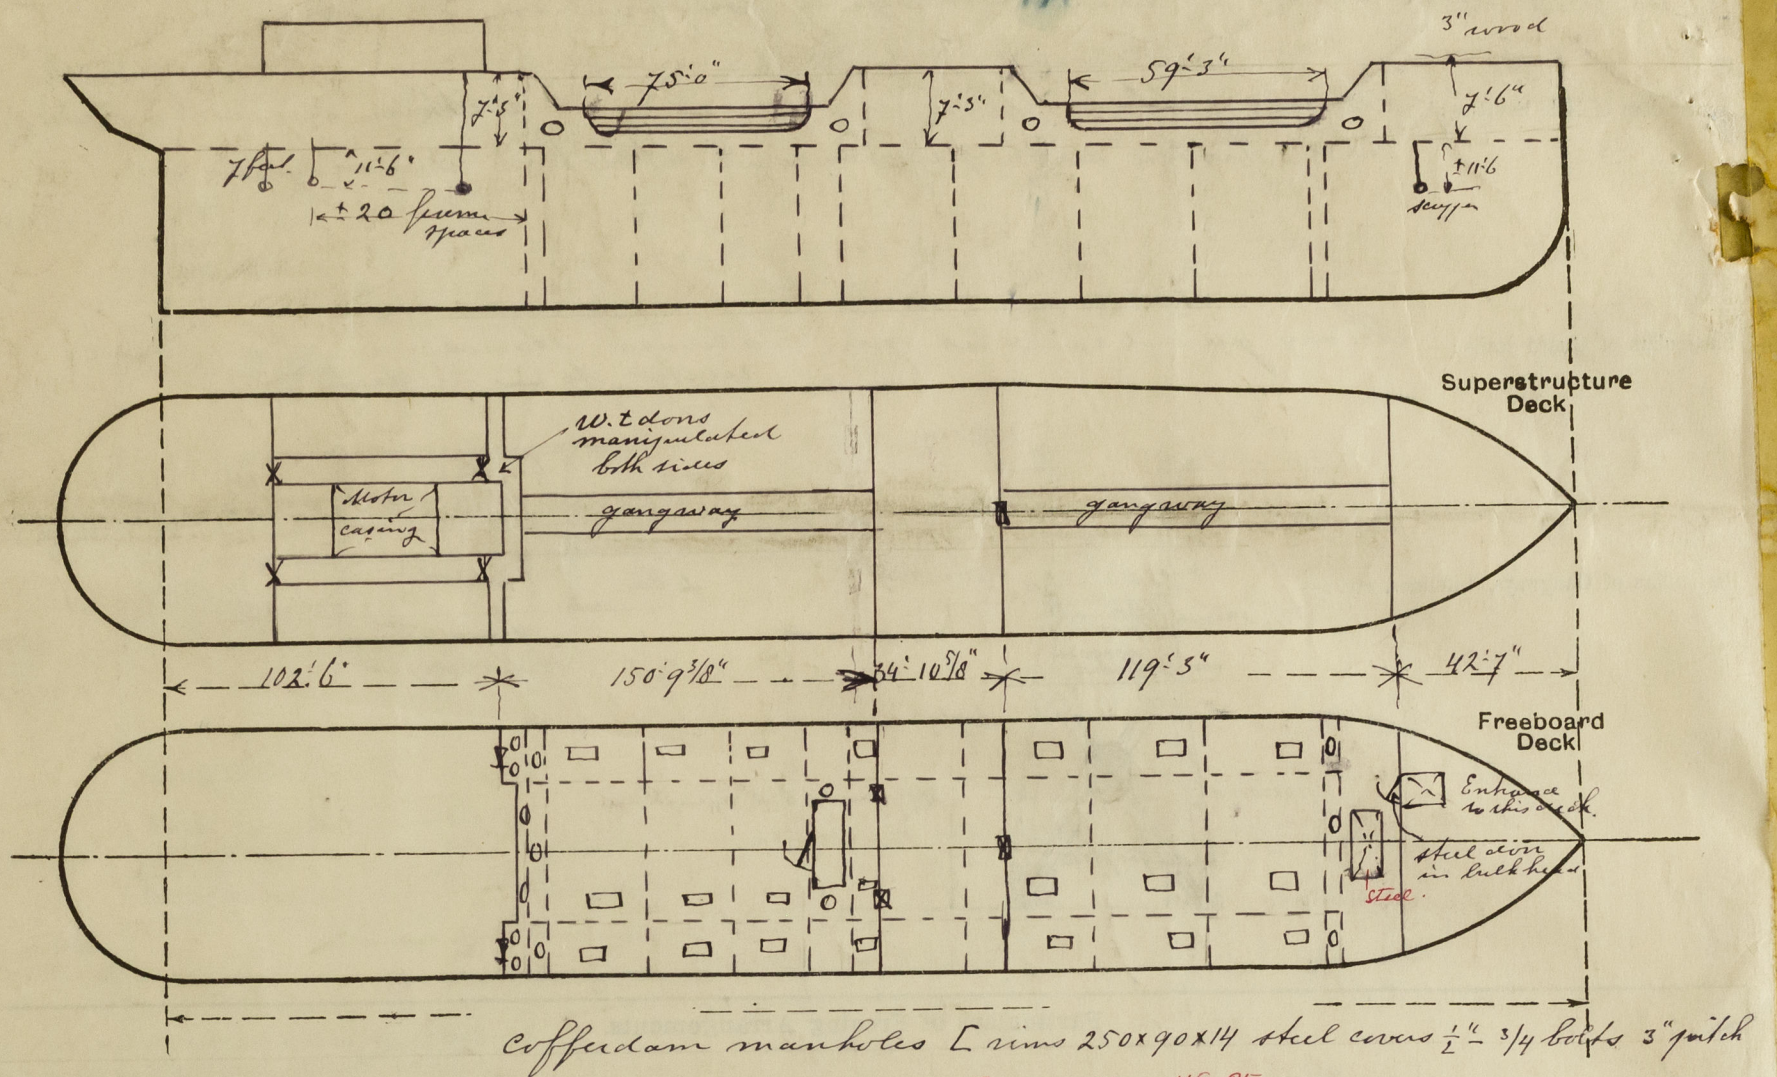 3" wood
75'-0"
59'-3"
7'-5"
7'-3"
7'-6"
7 feet.
11'-6"
± 11'-6
± 20 frame
spaces
scupper
Superstructure
Deck
W.t doors
manipulated
both sides
Motor
casing
gangway
gangway
102'-6"
150'-9 3/8"
34'-10 5/8"
119'-3"
42'-7"
Freeboard
Deck
Entrance
to this deck.
steel door
in bulkhead
steel.
Cofferdam manholes [ rims 250x90x14 steel covers ½" - 3/4 bolts 3" pitch